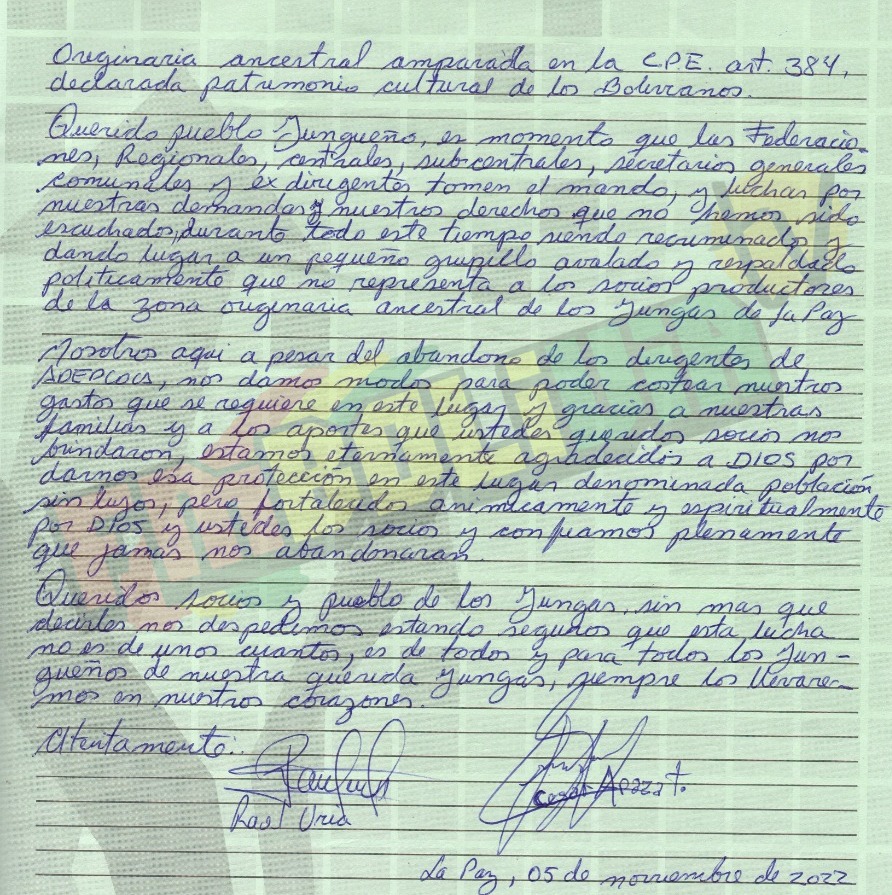 Originaria ancestral amparada en la C.P.E. art. 384,
declarada patrimonio cultural de los Bolivianos.
Querido pueblo Yungueño, es momento que las Federacio-
nes, Regionales, centrales, subcentrales, secretarios generales
comunales y ex dirigentes tomen el mando, y luchas por
nuestras demandas y nuestros derechos que no hemos sido
escuchados, durante todo este tiempo siendo recriminados y
dando lugar a un pequeño grupillo avalado y respaldado
politicamente que no representa a los socios productores
de la zona originaria ancestral de los Yungas de La Paz
Nosotros aqui a pesar del abandono de los dirigentes de
ADEPCOCA, nos damos modos para poder costear nuestros
gastos que se requiere en este lugar y gracias a nuestras
familias y a los aportes que ustedes queridos socios nos
brindaron, estamos eternamente agradecidos a DIOS por
darnos esa protección en este lugar denominada población
sin lujos, pero fortalecidos animicamente y espiritualmente
por DIOS y ustedes los socios y confiamos plenamente
que jamas nos abandonaran.
Queridos socios y pueblo de los Yungas, sin mas que
decirles nos despedimos estando seguros que esta lucha
no es de unos cuantos, es de todos y para todos los Yun-
gueños de nuestra querida Yungas, siempre los llevare-
mos en nuestros corazones.
Atentamente:.
Raul Uria
Cesar Apaza T.
La Paz, 05 de noviembre de 2022